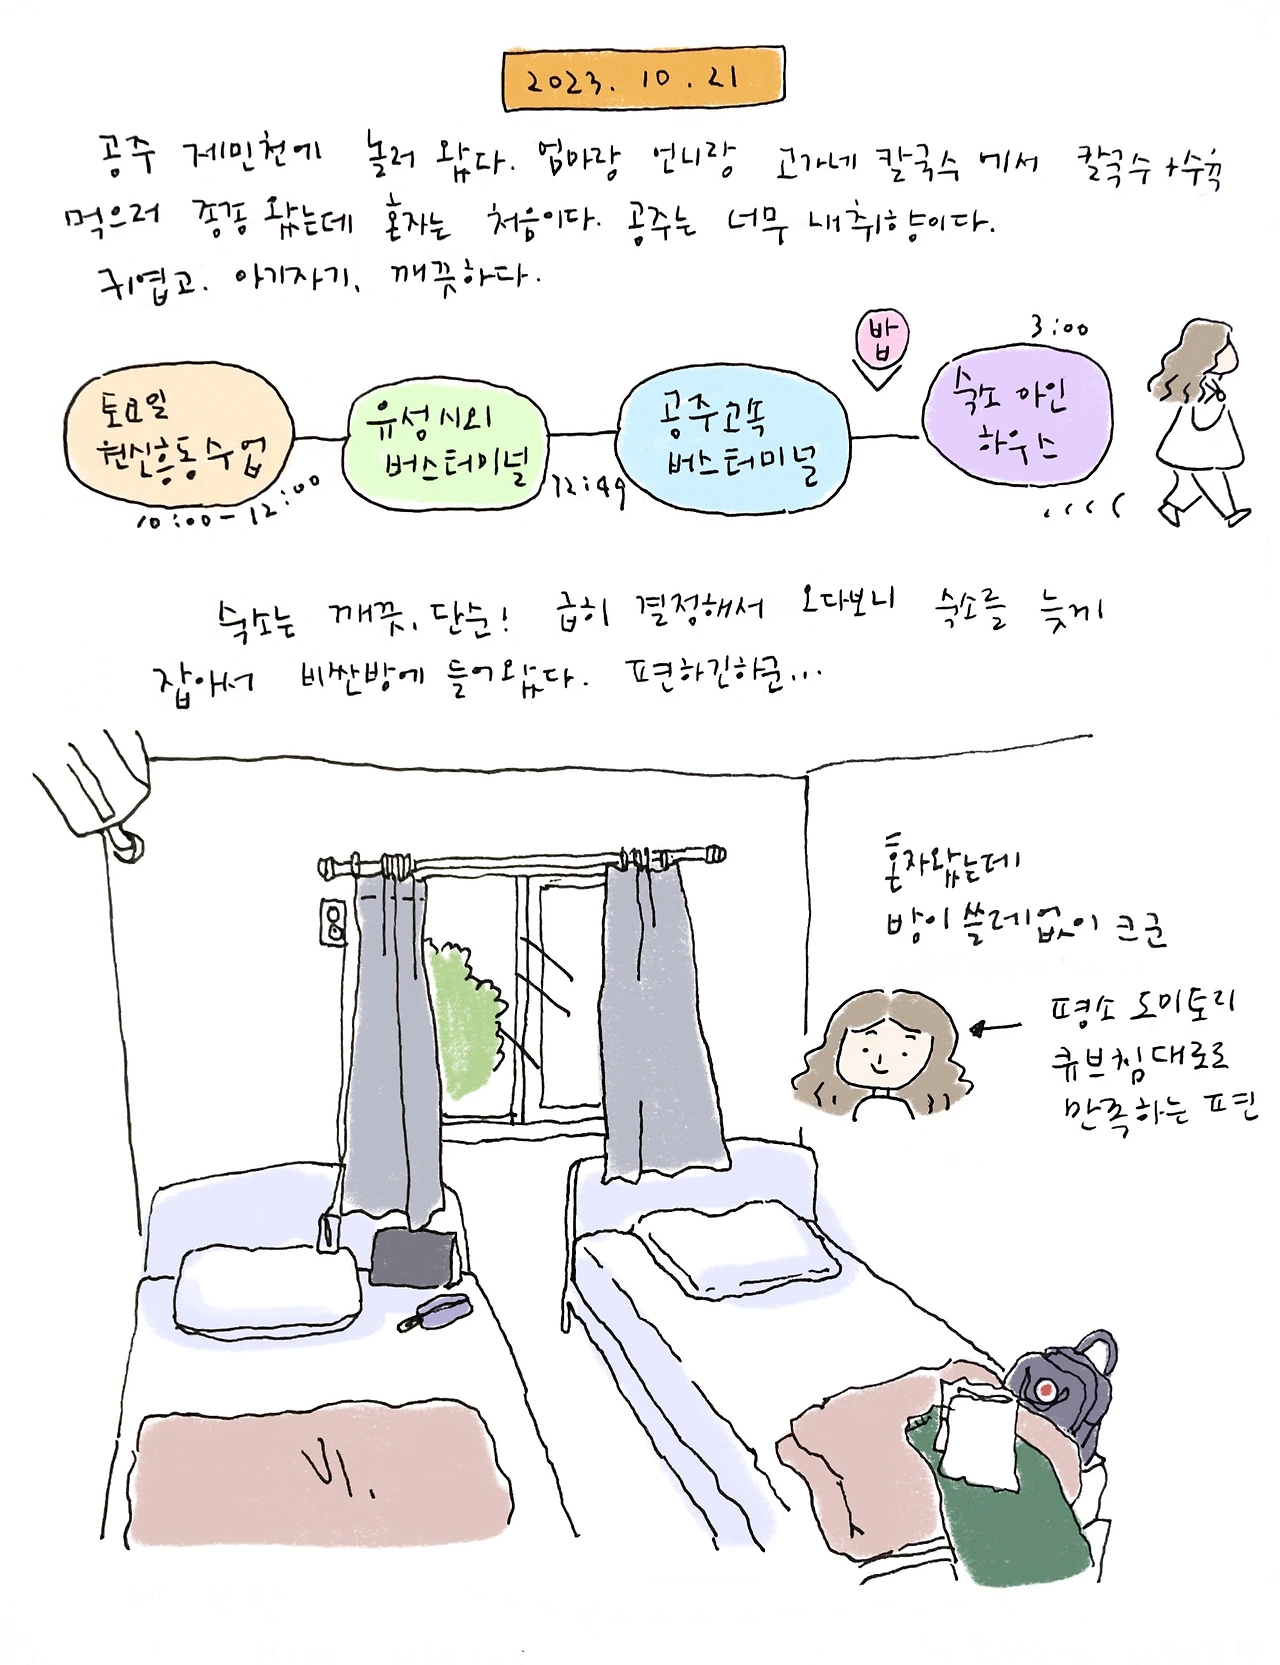 2023. 10. 21
공주 제민천에 놀러 왔다. 엄마랑 언니랑 고가네 칼국수에서 칼국수+수육
먹으러 종종 왔는데 혼자는 처음이다. 공주는 너무 내 취향이다.
귀엽고. 아기자기. 깨끗하다.
밥
3:00
토요일
원신흥동수업
10:00-12:00
유성시외
버스터미널
12:49
공주고속
버스터미널
숙소 아인
하우스
숙소는 깨끗, 단순! 급히 결정해서 오다보니 숙소를 늦게
잡아서 비싼방에 들어왔다. 편하긴하군...
혼자왔는데
방이 쓸레없이 크군
평소 도미토리
큐브침대로로
만족하는 편